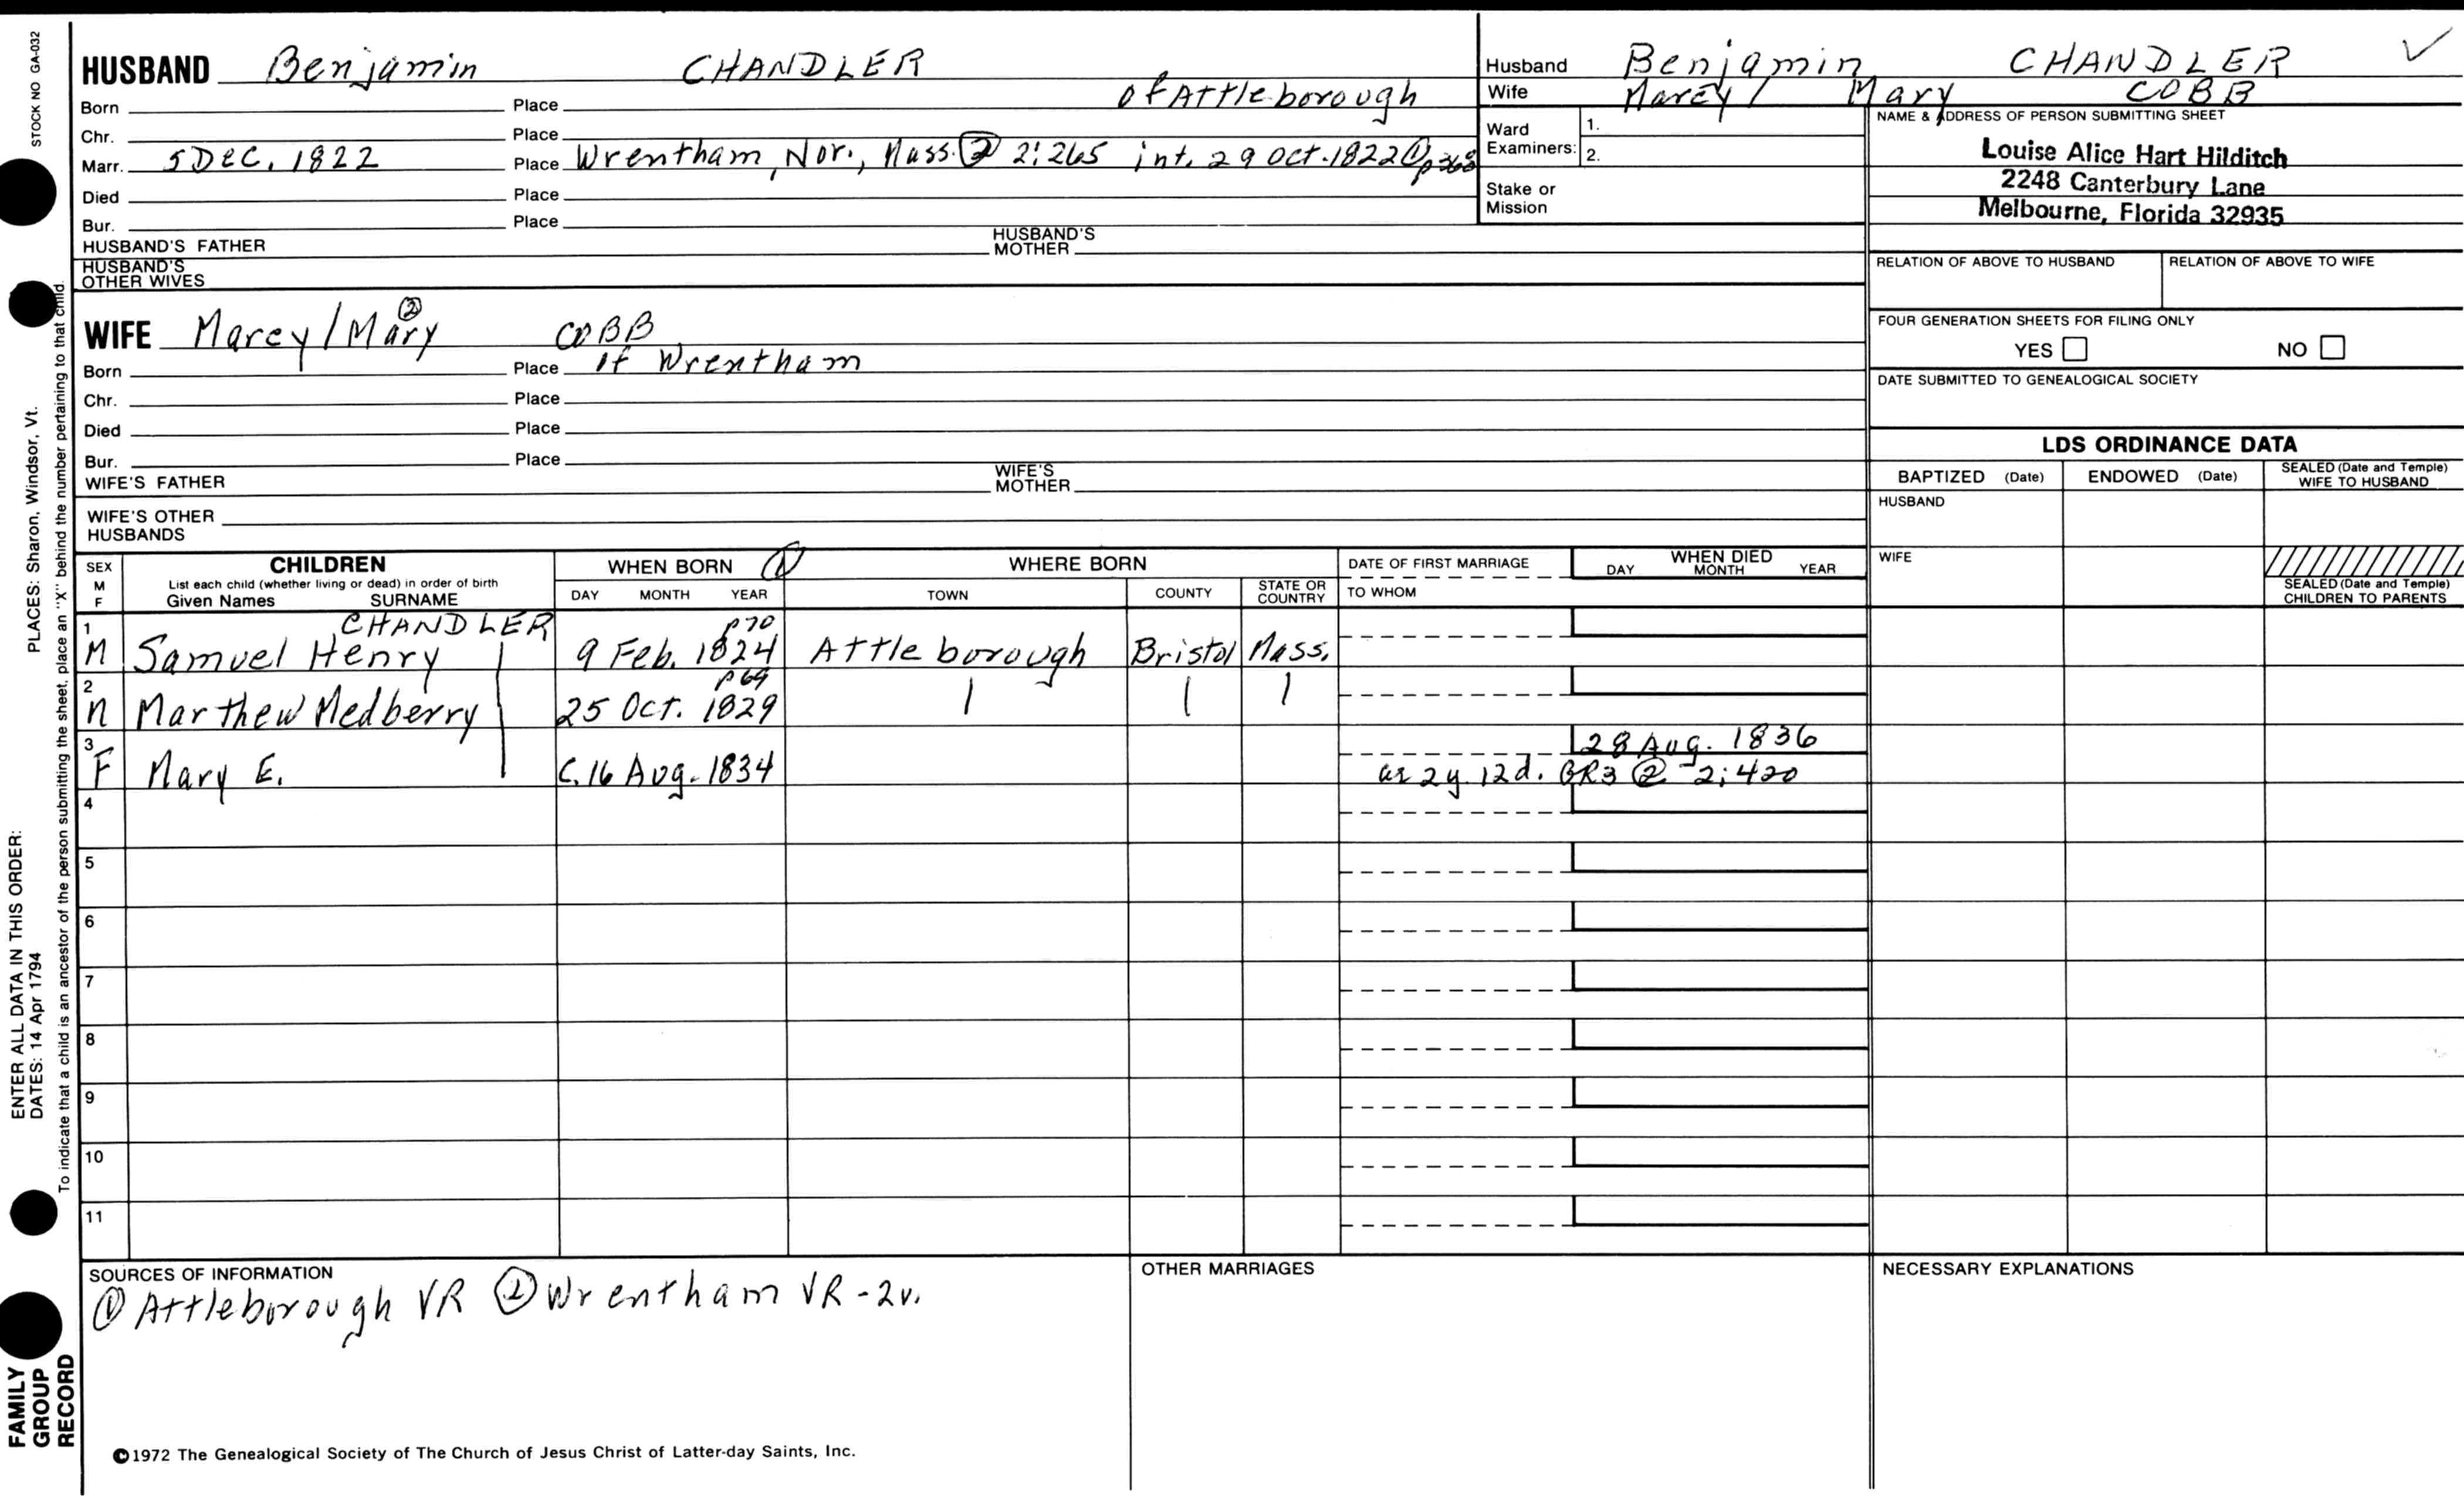 STOCK NO GA-032
PLACES: Sharon, Windsor, Vt.
ENTER ALL DATA IN THIS ORDER:
DATES: 14 Apr 1794
To indicate that a child is an ancestor of the person submitting the sheet, place an "X" behind the number pertaining to that child.
FAMILY
GROUP
RECORD
HUSBAND Benjamin CHANDLER
Born Place of Attleborough
Chr. Place
Marr. 5 Dec. 1822 Place Wrentham, Nor., Mass. ② 2:265 int. 29 Oct. 1822 ①
Died Place
Bur. Place
HUSBAND'S FATHER HUSBAND'S MOTHER
HUSBAND'S OTHER WIVES
WIFE Marcy/Mary ② COBB
Born Place of Wrentham
Chr. Place
Died Place
Bur. Place
WIFE'S FATHER WIFE'S MOTHER
WIFE'S OTHER HUSBANDS
Husband Benjamin CHANDLER ✓
Wife Marcy/ Mary COBB
Ward Examiners: 1.
2.
Stake or Mission
NAME & ADDRESS OF PERSON SUBMITTING SHEET
Louise Alice Hart Hilditch
2248 Canterbury Lane
Melbourne, Florida 32935
RELATION OF ABOVE TO HUSBAND RELATION OF ABOVE TO WIFE
FOUR GENERATION SHEETS FOR FILING ONLY
YES NO
DATE SUBMITTED TO GENEALOGICAL SOCIETY
LDS ORDINANCE DATA
BAPTIZED (Date) ENDOWED (Date) SEALED (Date and Temple) WIFE TO HUSBAND
HUSBAND
WIFE
SEALED (Date and Temple) CHILDREN TO PARENTS
SEX M F CHILDREN WHEN BORN ① WHERE BORN DATE OF FIRST MARRIAGE WHEN DIED
List each child (whether living or dead) in order of birth
Given Names SURNAME DAY MONTH YEAR TOWN COUNTY STATE OR COUNTRY TO WHOM DAY MONTH YEAR
CHANDLER p70
1 M Samuel Henry 9 Feb. 1824 Attleborough Bristol Mass.
p69
2 M Marthew Medberry 25 Oct. 1829
28 Aug. 1836
3 F Mary E. C. 16 Aug. 1834 ae 2y. 12d. GR3 ② 2:420
4
5
6
7
8
9
10
11
SOURCES OF INFORMATION
① Attleborough VR ② Wrentham VR-2v.
OTHER MARRIAGES
NECESSARY EXPLANATIONS
©1972 The Genealogical Society of The Church of Jesus Christ of Latter-day Saints, Inc.